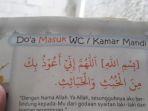 Do'a Masuk WC / Kamar Mandi
(بِسْمِ اللهِ) اَللّٰهُمَّ إِنِّي أَعُوْذُ بِكَ
مِنَ الْخُبُثِ وَالْخَبَائِثِ
"Dengan Nama Allah. Ya Allah, sesungguhnya aku ber-
lindung kepada-Mu dari godaan syaitan laki-laki dan